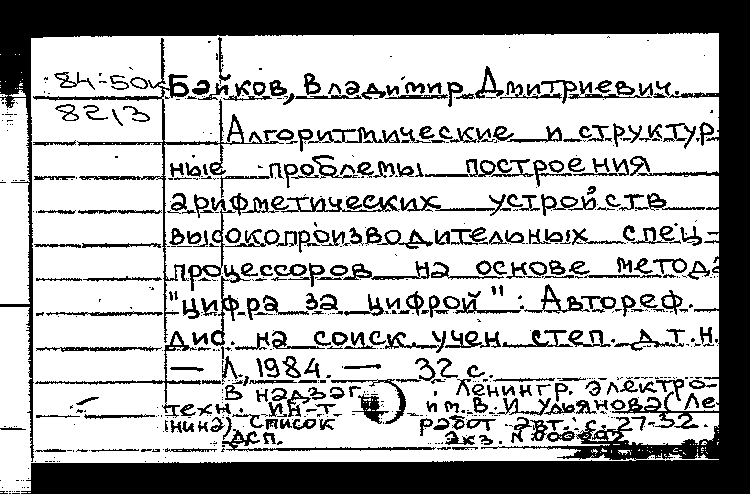 84-50к Байков, Владимир Дмитриевич.
8213
Алгоритмические и структур-
ные проблемы построения
арифметических устройств
высокопроизводительных спец-
процессоров на основе метода
"цифра за цифрой": Автореф.
дис. на соиск. учен. степ. д.т.н.
— Л., 1984. — 32 с.
В надзаг.: Ленингр. электро-
техн. ин-т им. В.И Ульянова (Ле-
нина). Список работ авт.: с. 27-32.
ДСП. Экз. N